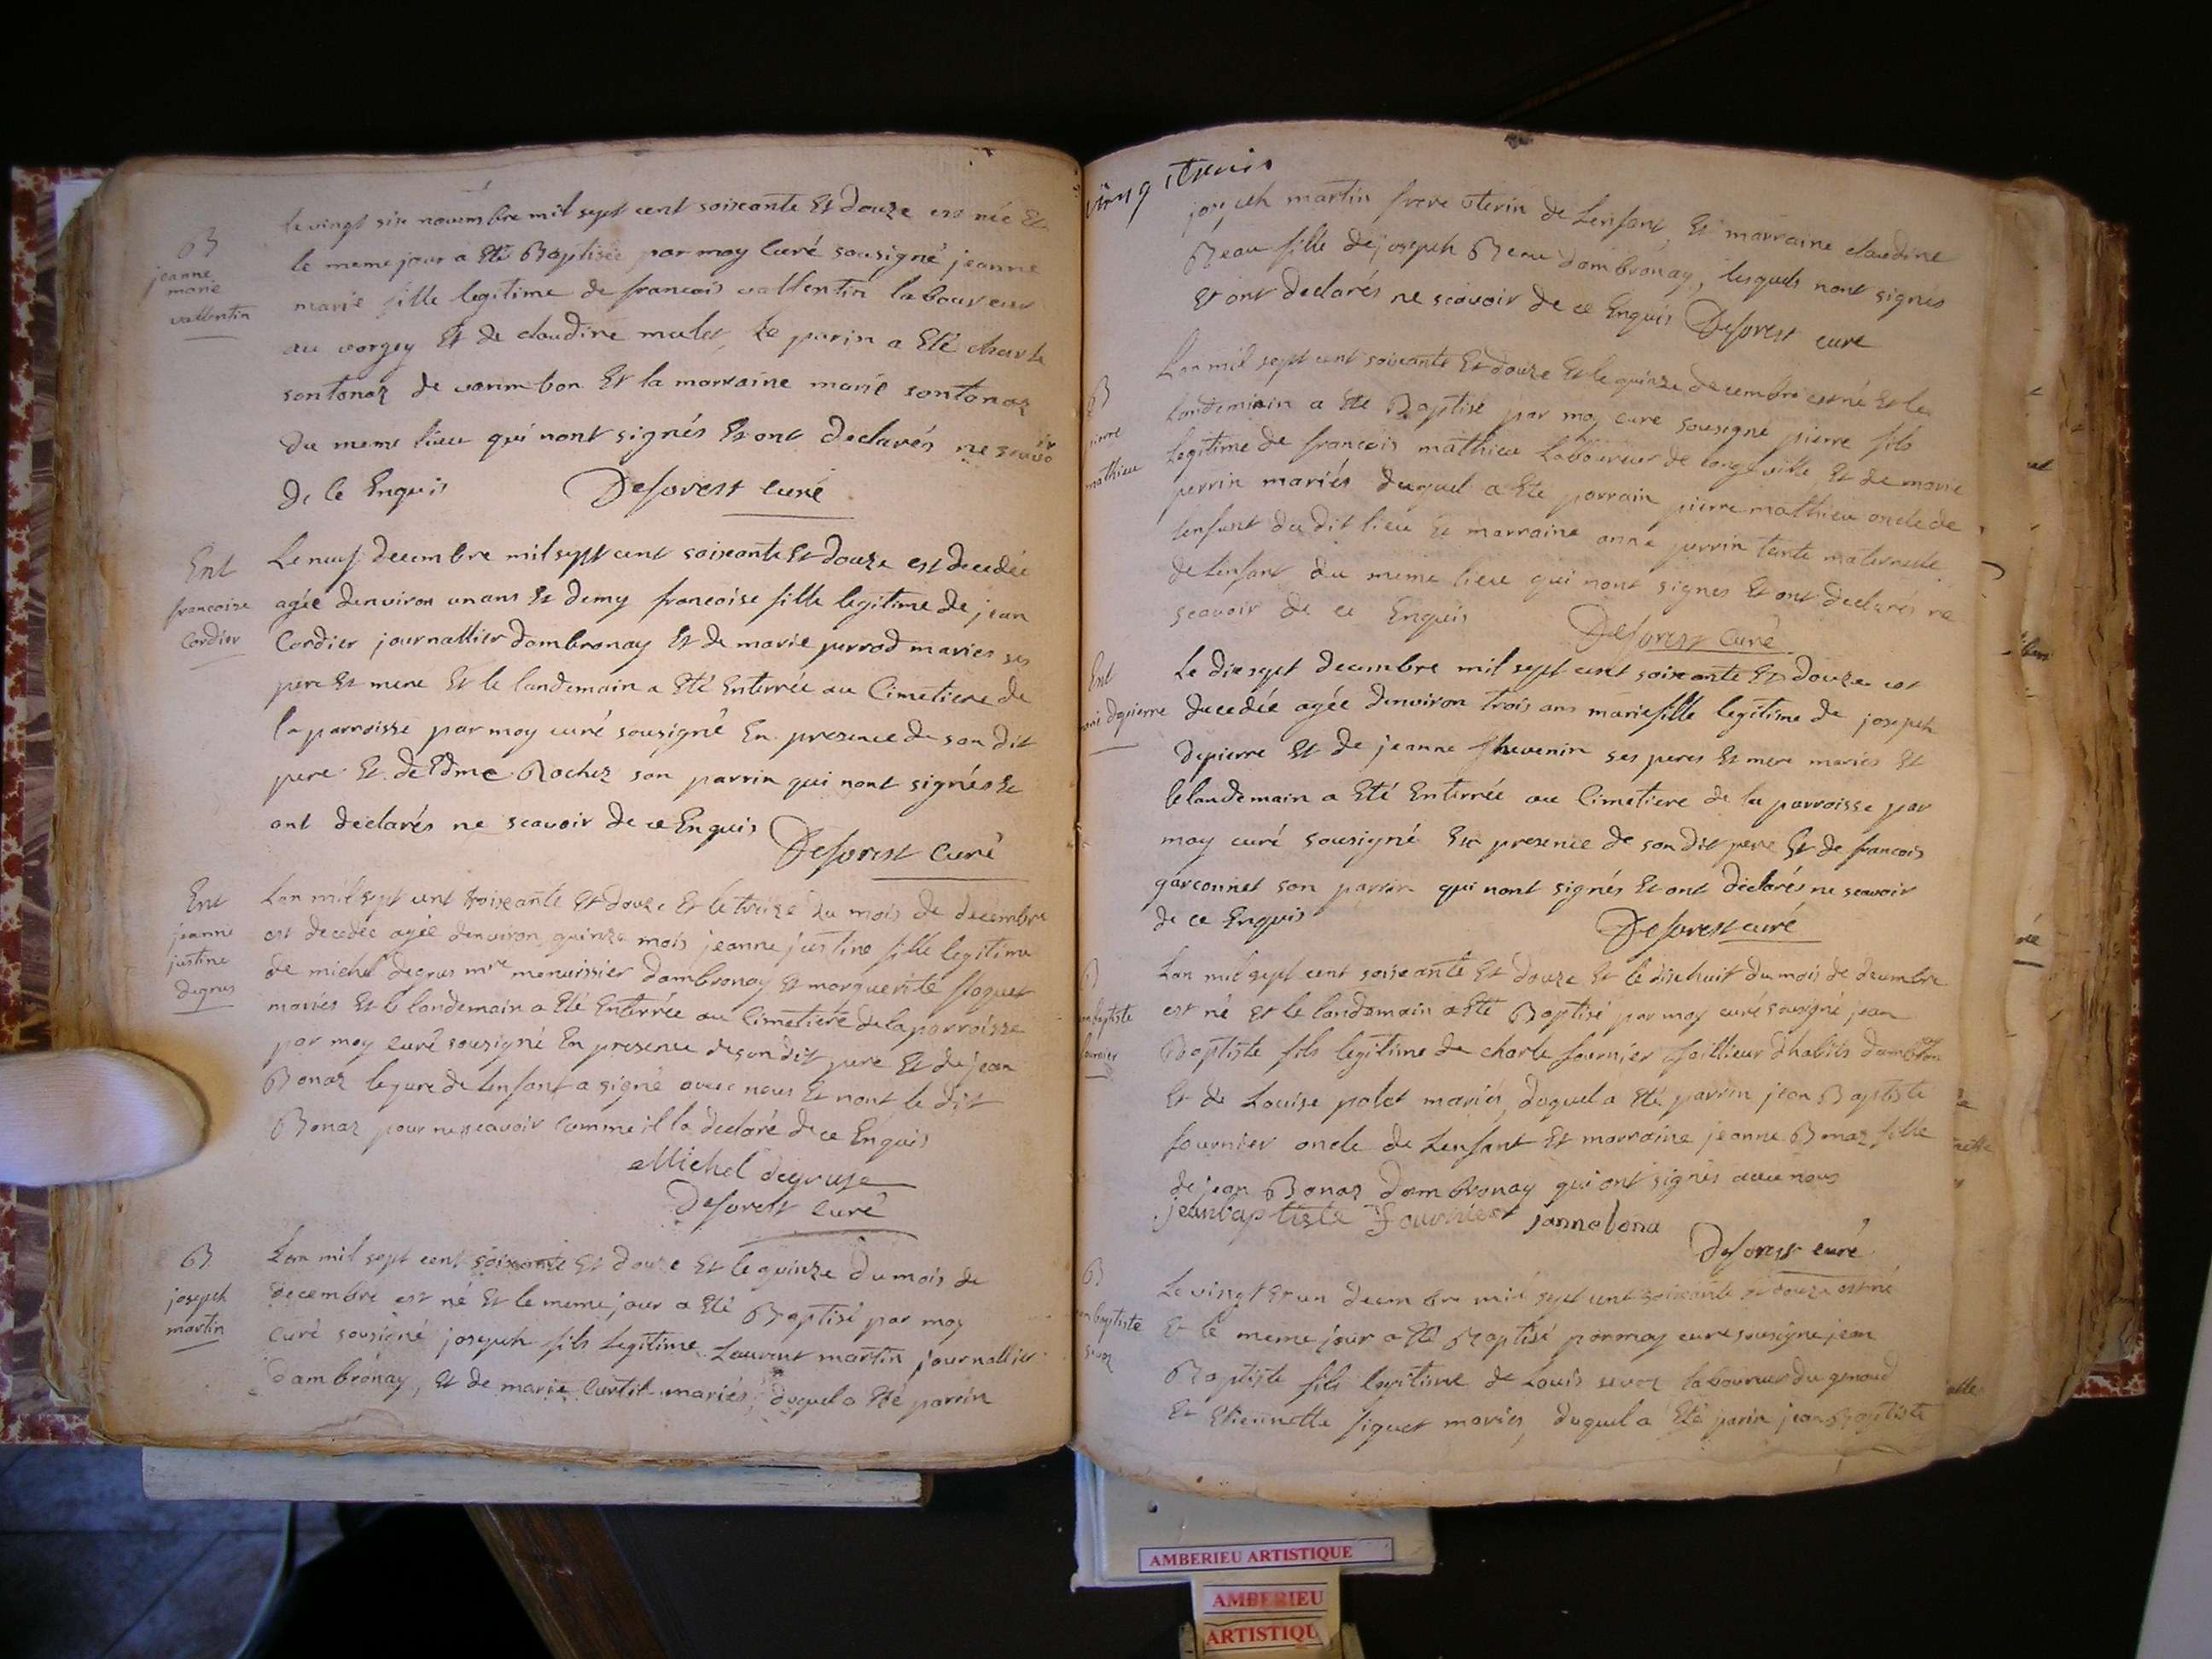 B
jeanne
marie
vallentin
le vingt six novembre mil sept cent soixante Et douze est née Et
le meme jour a Eté Baptisée par moy Curé sousigné jeanne
marie fille legitime de francois vallentin laboureur
au vorgey Et de claudine mulet, Le parin a Eté charle
sontonaz de varimbon Et la marraine marie sontonaz
du meme lieu qui nont signés Et ont declarés ne scavoir
de ce Enquis Deforest Curé
Ent
francoise
Cordier
Le neuf decembre mil sept cent soixante Et douze est decedée
agée denviron un ans Et demy francoise fille legitime de jean
Cordier journallier dambronay Et de marie perrod maries ses
pere Et mere Et le landemain a Eté Enterrée au Cimetiere de
la parroisse par moy curé sousigné En presence de son dit
pere Et de Edme Rochez son parrin qui nont signés Et
ont declarés ne scavoir de ce Enquis
Deforest Curé
Ent
jeanne
justine
degrus
Lan mil sept cent soixante Et douze Et le treize du mois de decembre
est decedée agée denviron quinze mois jeanne justine fille legitime
de michel degrus mre menuissier dambronay Et marguerite floquet
maries Et le landemain a Eté Enterrée au Cimetiere de la parroisse
par moy Curé sousigné En presence de son dit pere Et de jean
Bonaz le pere de lenfant a signé avec nous Et nont le dit
Bonaz pour ne scavoir comme il la declaré de ce Enquis
Michel degruse
Deforest Curé
B
joseph
martin
Lan mil sept cent soixante Et douze Et le quinze du mois de
decembre est né Et le meme jour a Eté Baptisé par moy
Curé sousigné joseph fils legitime Laurent martin journallier
dambronay, Et de marie Curtil mariés, duquel a Eté parrin
vingt trois
joseph martin frere uterin de Lenfant, Et marraine claudine
Beau fille de joseph Beau dambronay, lesquels nont signés
Et ont declarés ne scavoir de ce Enquis Deforest curé
B
pierre
mathieu
Lan mil sept cent soixante Et douze Et le quinze decembre est né Et le
landemain a Eté Baptisé par moy curé sousigné pierre fils
legitime de francois mathieu Laboureur de longeville Et de marie
perrin mariés duquel a Eté parrain pierre mathieu oncle de
lenfant du dit lieu Et marraine anne perrin tante maternelle
de Lenfant du meme lieu qui nont signes Et ont declarés ne
scavoir de ce Enquis Deforest Curé
Ent
marie depierre
Le dix sept decembre mil sept cent soixante Et douze est
decedée agée denviron trois ans marie fille legitime de joseph
depierre Et de jeanne thevenin ses peres Et mere mariés Et
le landemain a Eté Enterrée au Cimetiere de la parroisse par
moy curé sousigné En presence de son dit pere Et de francois
garconnet son parrin qui nont signés Et ont declarés ne scavoir
de ce Enquis Deforest curé
B
jean baptiste
fournier
Lan mil sept cent soixante Et douze Et le dixhuit du mois de decembre
est né Et le landemain a Eté Baptisé par moy curé sousigné jean
Baptiste fils legitime de charle fournier tailleur dhabits dambronay
Et de Louise polet mariés, duquel a Eté parrin jean Baptiste
fournier oncle de Lenfant Et marraine jeanne Bonaz fille
de jean Bonaz dambronay qui ont signés avec nous
jeanbaptiste fournier jannebona
Deforest curé
B
jean baptiste
sevoz
Le vingt Et un decembre mil sept cent soixante Et douze est né
Et le meme jour a Eté Baptisé par moy curé sousigné jean
Baptiste fils legitime de Louis sevoz laboureur du genoud
Et Etiennette siquet mariés, duquel a Eté parin jean Baptiste
AMBERIEU ARTISTIQUE
AMBERIEU
ARTISTIQU